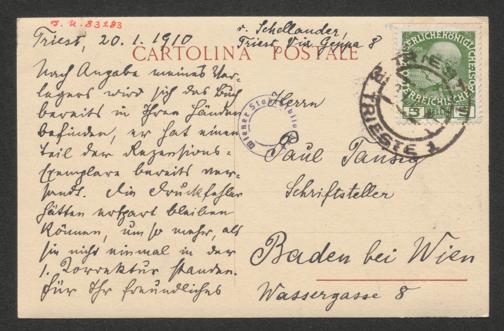 J. N. 83283
Triest, 20. 1. 1910
v. Schellander,
Triest, Via Geppa 8
CARTOLINA POSTALE
Nach Angabe meines Ver-
legers wird sich das Buch
bereits in Ihren Händen
befinden, er hat einen
Teil der Rezensions-
exemplare bereits ver-
sandt. Die Druckfehler
hätten erspart bleiben
können, um so mehr, als
sie nicht einmal in der
1. Korrektur standen.
Für Ihr freundliches
Herrn
Paul Tausig
Schriftsteller
Baden bei Wien
Wassergasse 8
Wiener
TRIEST
TRIESTE 1
5